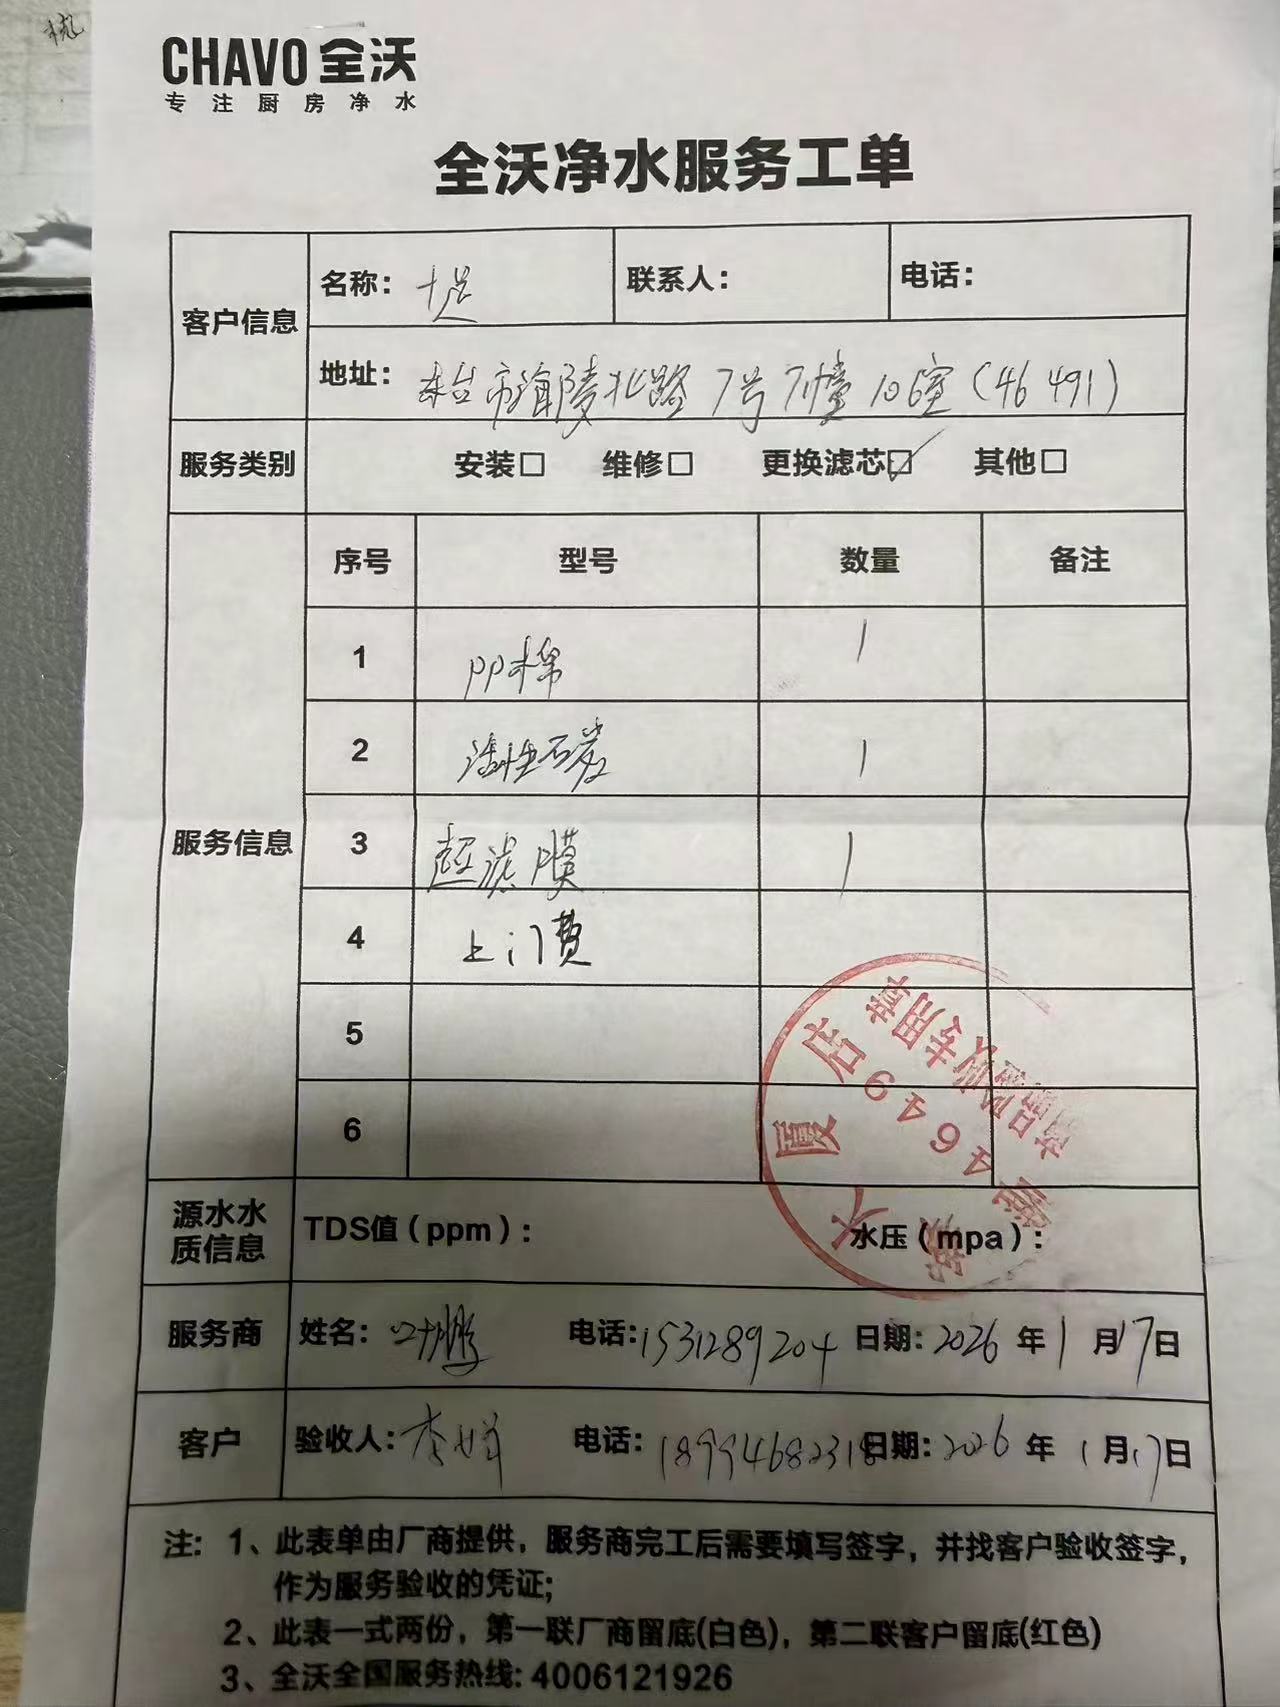 CHAVO 全沃
专注厨房净水
全沃净水服务工单
客户信息
名称：十足
联系人：
电话：
地址：东台市海陵北路7号7幢106室（46491）
服务类别
安装□ 维修□ 更换滤芯☑ 其他□
服务信息
序号 型号 数量 备注
1 PP棉 1
2 活性碳 1
3 超滤膜 1
4 上门费
5
6
厦 46491店
商品验收专用章
源水水质信息
TDS值（ppm）：
水压（mpa）：
服务商 姓名：叶鹏 电话：1531289204 日期：2026年1月17日
客户 验收人：李 电话：18994682318 日期：2026年1月17日
注：1、此表单由厂商提供，服务商完工后需要填写签字，并找客户验收签字，
作为服务验收的凭证；
2、此表一式两份，第一联厂商留底(白色)，第二联客户留底(红色)
3、全沃全国服务热线：4006121926